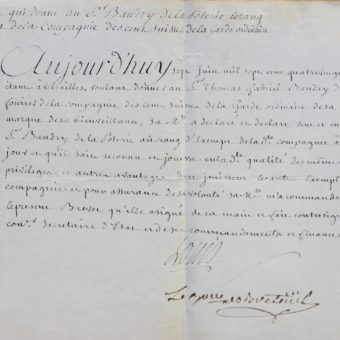 qui donne au S.r Baudry de la Poterie le rang
de la Compagnie des cent Suisses de la garde ordinaire
Aujourd'huy sept Juin mil sept cent quatrevingt
étant à Versailles, voulant donner au S.r Thomas Gabriel Baudry de
fourier de la compagnie des cent Suisses de la Garde ordinaire de sa
marque de sa bienveillance, sa M.té a déclaré et déclare
S.r Baudry de la Poterie au rang d'Exempt de la d.te compagnie
jour ce qu'il soit reconnu en la d.te qualité des mêmes
privileges et autres avantages dont jouissent les autres Exempts
compagnie et pour assurance de sa volonté sa M.té m'a commandé
le present Brevet qu'elle a signé de sa main et fait contresigner
con.er Secretaire d'Etat et de ses commandements et finances
Louis
Le Bon de Breteüil